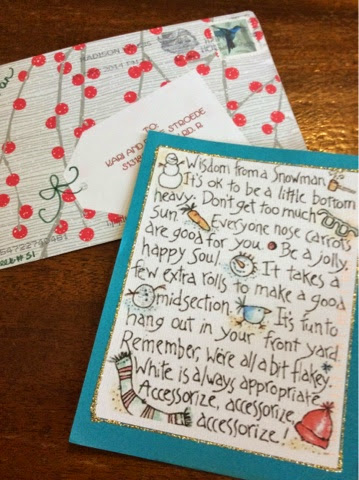 MADISON
TO:
KARI AND STROEDE
RD. R
Wisdom from a Snowman
It's ok to be a little bottom
heavy. Don't get too much
sun. Everyone nose carrots
are good for you. Be a jolly,
happy soul. It takes a
few extra rolls to make a good
midsection. It's fun to
hang out in your front yard.
Remember, we're all a bit flakey.
White is always appropriate.
Accessorize, accessorize,
accessorize!